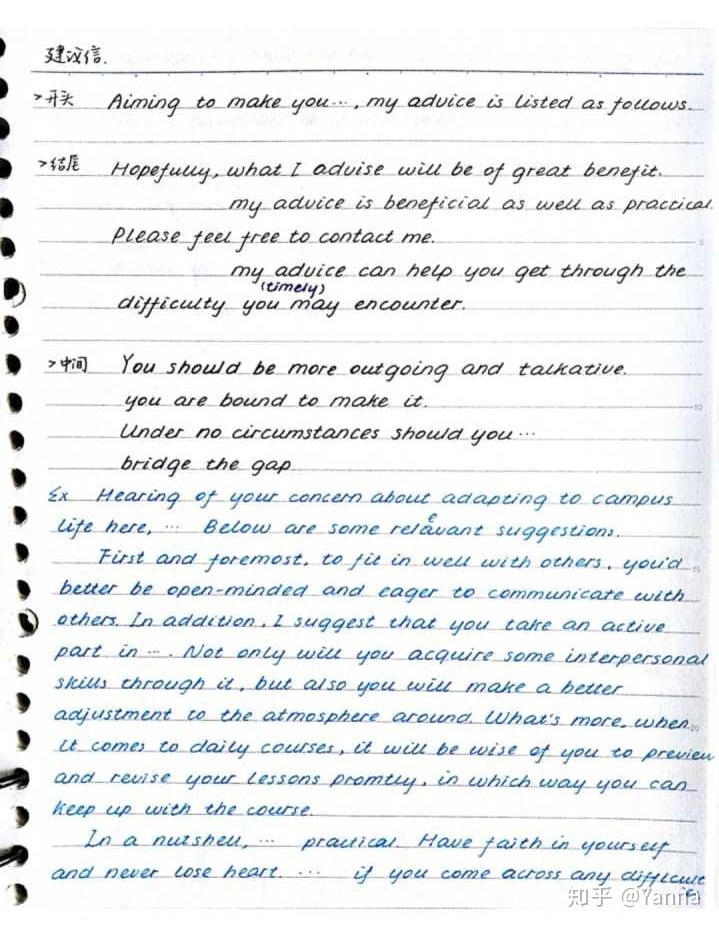 建议信.
>开头 Aiming to make you…, my advice is listed as follows.
>结尾 Hopefully, what I advise will be of great benefit.
my advice is beneficial as well as practical.
Please feel free to contact me.
my advice can help you get through the
(timely)
difficulty you may encounter.
>中间 You should be more outgoing and talkative.
you are bound to make it.
Under no circumstances should you…
bridge the gap
Ex Hearing of your concern about adapting to campus
life here, … Below are some relevant suggestions.
First and foremost, to fit in well with others, you'd
better be open-minded and eager to communicate with
others. In addition, I suggest that you take an active
part in …. Not only will you acquire some interpersonal
skills through it, but also you will make a better
adjustment to the atmosphere around. What's more, when
it comes to daily courses, it will be wise of you to preview
and revise your lessons promtly, in which way you can
keep up with the course.
In a nutshell, … practical. Have faith in yourself
and never lose heart. … if you come across any difficult
知乎 @Yanna